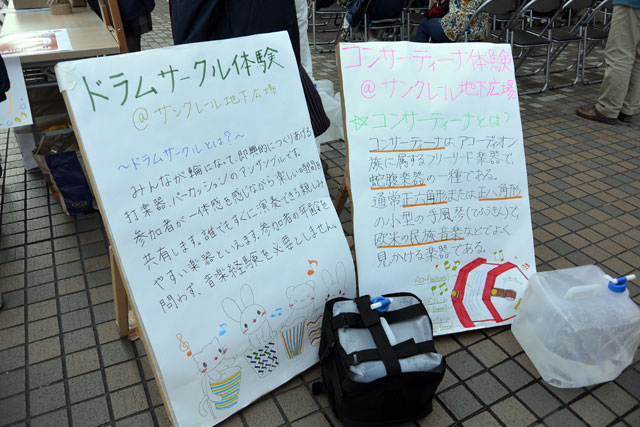 ドラムサークル体験
@サンクレール地下広場
～ドラムサークルとは?～
みんなが輪になって、即興的につくりあげる
打楽器、パーカッションのアンサンブルです。
参加者が一体感を感じながら楽しい時間を
共有します。誰でもすぐに演奏できる親しみ
やすい楽器といえます。参加者の年齢を
問わず、音楽経験を必要としません。
コンサーティーナ体験
@サンクレール地下広場
☆コンサーティーナとは?
コンサーティーナはアコーディオン
族に属するフリーリード楽器で、
蛇腹楽器の一種である。
通常正六角形または正八角形
の小型の手風琴(てふうきん)で、
欧米の民族音楽などでよく
見かける楽器である。